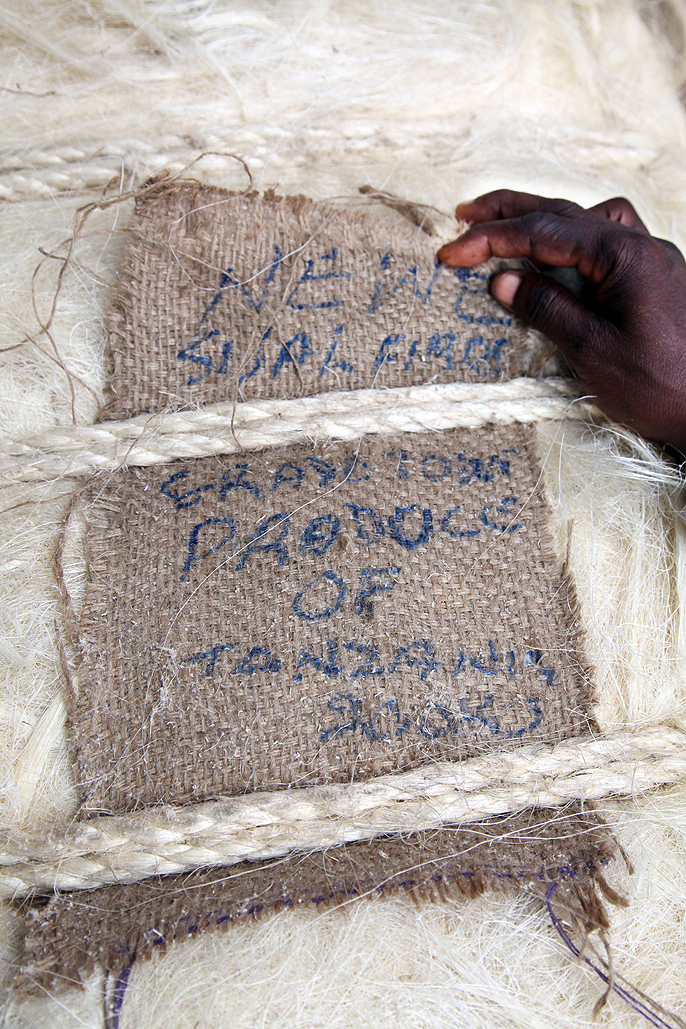 NEWE
SISAL FIBRE
GRADE TOW1
PRODUCE
OF
TANZANIA